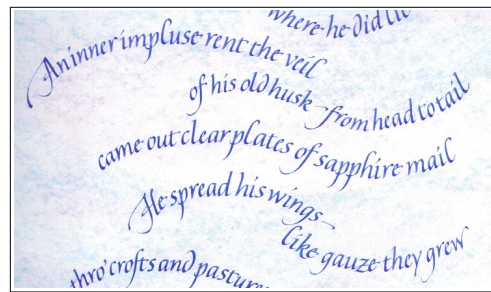 where he did lie
An inner impluse rent the veil
of his old husk from head to tail
came out clear plates of sapphire mail
He spread his wings
like gauze they grew
thro' crofts and